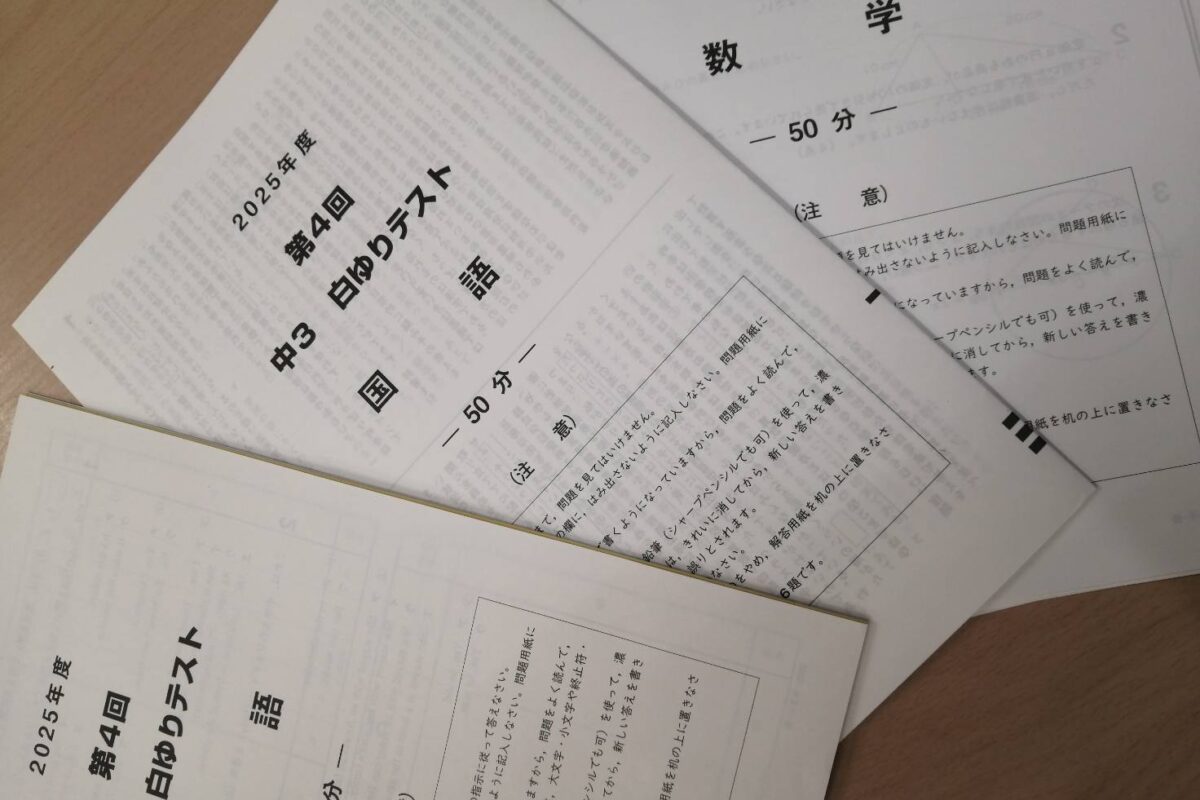 2025年度
第4回
中3 白ゆりテスト
国 語
― 50 分 ―
(注 意)
まで，問題を見てはいけません。
の欄に，はみ出さないように記入しなさい。問題用紙に
書くようになっていますから，問題をよく読んで，
鉛筆（シャープペンシルでも可）を使って，濃
は，きれいに消してから，新しい答えを書き
誤りとされます。
なさい。
をやめ，解答用紙を机の上に置きなさ
6題です。
数 学
― 50 分 ―
(注 意)
を見てはいけません。
はみ出さないように記入しなさい。問題用紙に
になっていますから，問題をよく読んで，
ープペンシルでも可）を使って，濃
に消してから，新しい答えを書き
ます。
用紙を机の上に置きなさ
2025年度
第4回
白ゆりテスト
語
分 ―
の指示に従って答えなさい。
ように記入しなさい。問題用紙に
ますから，問題をよく読んで，
，大文字・小文字や終止符・
ンシルでも可）を使って，濃
てから，新しい答えを書き
用紙を机の上に置きなさ